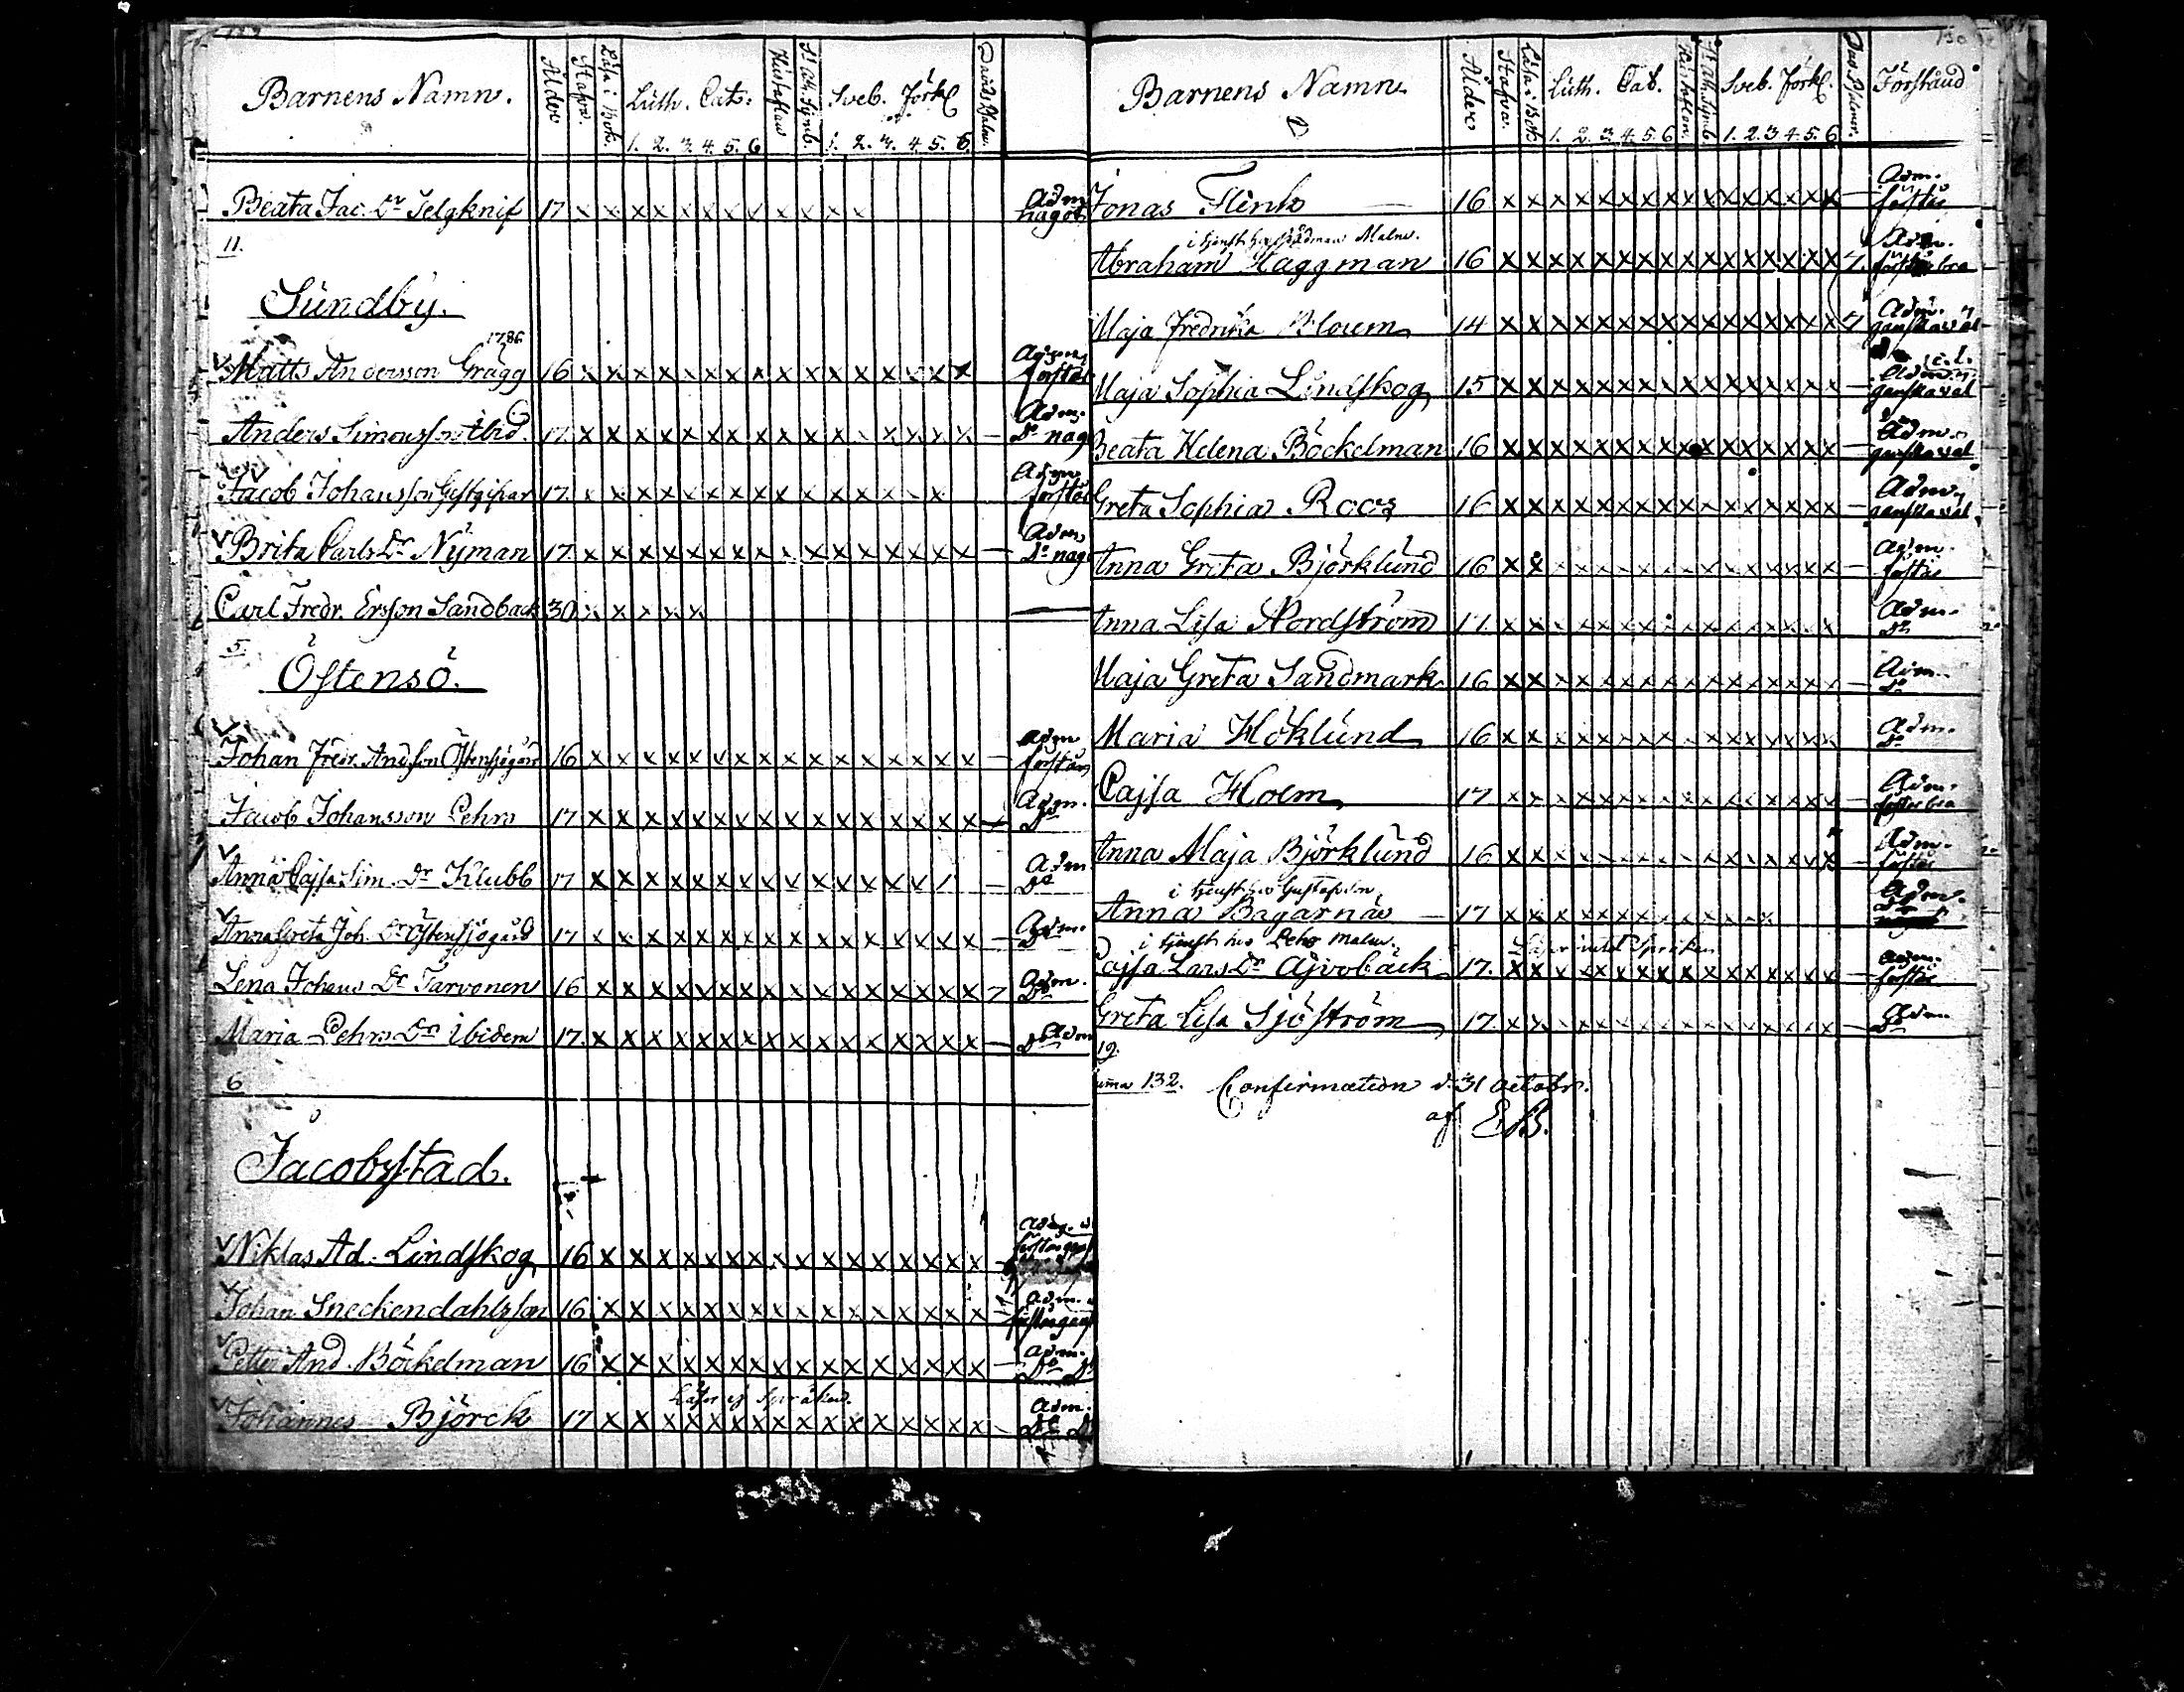 Barnens Namn. Ålder Stafva. Läsa i Bok. Luth. Cat: Hustaflan St. Ath. Symb. Sveb. Förkl Davids Psalm.
1. 2. 3. 4. 5. 6 1. 2. 3. 4. 5. 6.
Beata Jac. Dr Selgknif 17 x x x x x x x x x x x x Adm något
11.
Sundby.
1786
Matts Andersson Grägg 16 x x x x x x x x x x x x x x x x Adm förstår
Anders Simonsson Ibid. 17. x x x x x x x x x x x x x x x x — Adm. Do någ
Jacob Johansson Gestgifvar 17. x x x x x x x x x x x x x x x Adm förstår
Brita Carls Dr Nyman 17. x x x x x x x x x x x x x x x x — Adm Do någ
Carl Fredr. Ersson Sandback 30. x x x x x —
5.
Östensö.
Johan Fredr. Andsson Östensjögård 16 x x x x x x x x x x x x x x x x — adm förstår
Jacob Johansson Pehrs 17 x x x x x x x x x x x x x x x x Adm. Do
Anna Cajsa Sim. Dr Klubb 17 x x x x x x x x x x x x x x — Adm. Do
Anna Greta Joh. Dr Östensjögård 17 x x x x x x x x x x x x x x x x — Adm. Do
Lena Johans Dr Tarvonen 16 x x x x x x x x x x x x x x x x 7 Adm. Do
Maria Pehrs Dr Ibidem 17. x x x x x x x x x x x x x x x x — Do Adm
6
Jacobstad.
Niklas Ad. Lindskog 16 x x x x x x x x x x x x x x x x — Adm.
Johan Sneckendahlsson 16 x x x x x x x x x x x x x x x x Adm.
Petter And. Böckelman 16 x x x x x x x x x x x x x x x x — adm. Do Do
Läser ej Språken.
Johannes Björck 17 x x x x x x x x x x x x x x x x — Adm. Do
130
Barnens Namn Ålder Stafva. Läsa i Bok Luth. Cat. Hustaflan. St. Ath. Symb. Sveb. Förkl. Dav. Psalmer. Förstånd
1. 2. 3. 4. 5. 6 1. 2. 3 4. 5. 6
Jonas Flink — 16 x x x x x x x x x x x x x x x x — Adm. förstår
i tjenst hos Rådman Malm.
Abraham Häggman 16 x x x x x x x x x x x x x x x x 7. Adm. förstår bra
Maja Fredrika Bloem 14 x x x x x x x x x x x x x x x x 7 Adm. ganska väl
Maja Sophia Lindskog 15 x x x x x x x x x x x x x x x x — Adm. ganska väl
Beata Helena Böckelman 16 x x x x x x x x x x x x x x x x — Adm. ganska väl
Greta Sophia Roos 16 x x x x x x x x x x x x x x x x — Adm. ganska väl
Anna Greta Björklund 16 x x x x x x x x x x x x x x x x — Adm. förstår
Anna Lisa Nordström 17. x x x x x x x x x x x x x x x x Adm. Do
Maja Greta Sandmark 16 x x x x x x x x x x x x x x x x — Adm. Do
Maria Höklund 16 x x x x x x x x x x x x x x x x Adm. Do
Cajsa Holm 17 x x x x x x x x x x x x x x x x — Adm. förstår bra
Anna Maja Björklund 16 x x x x x x x x x x x x x x x x — Adm. förstår
i tjenst hos Gustafsson
Anna Bagarnäs — 17 x x x x x x x x x x x x x Adm.
i tjenst hos Pehr Malm. Läser intet Språken
Cajsa Lars Dr Ajvobäck 17. x x x x x x x x x x x x x x x x — Adm. förstår
Greta Lisa Sjöström 17. x x x x x x x x x x x x x x x x — Adm. Do
19.
Summa 132. Confirmation d. 31 octobr.
af EB.